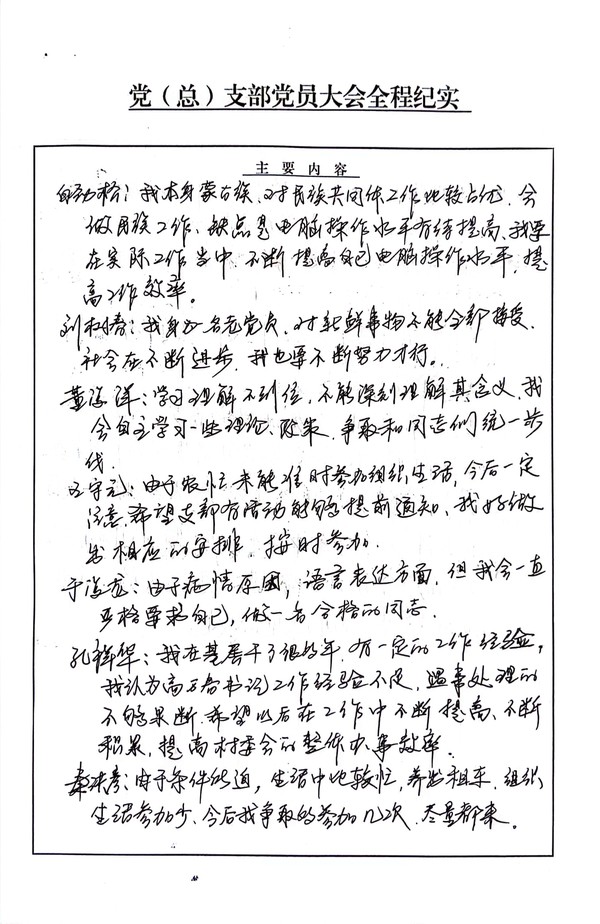 党（总）支部党员大会全程纪实
主要内容
白劲松：我本身蒙古族、对民族共同体工作比较占优、会
做民族工作、缺点是电脑操作水平有待提高、我要
在实际工作当中、不断提高自己电脑操作水平，提
高工作效率。
刘树清：我身为一名老党员、对新鲜事物不能全部接受、
社会在不断进步、我也要不断努力才行。
董海洋：学习理解不到位，不能深刻理解其含义、我
会自主学习一些理论、政策、争取和同志们统一步
伐.
王守元：由于农忙未能准时参加组织生活，今后一定
注意.希望支部有活动能够提前通知、我好做
出相应的安排，按时参加.
于海龙：由于病情原因，语言表达方面，但我会一直
严格要求自己，做一名合格的同志.
孔祥华：我在基层干了很多年.有一定的工作经验，
我认为高万春书记工作经验不足，遇事处理的
不够果断.希望以后在工作中不断提高、不断
积累，提高村委会的整体办事效率.
：由于条件所迫，生活中比较忙，养出租车、组织
生活参加少、今后我争取的参加几次、尽量都来。